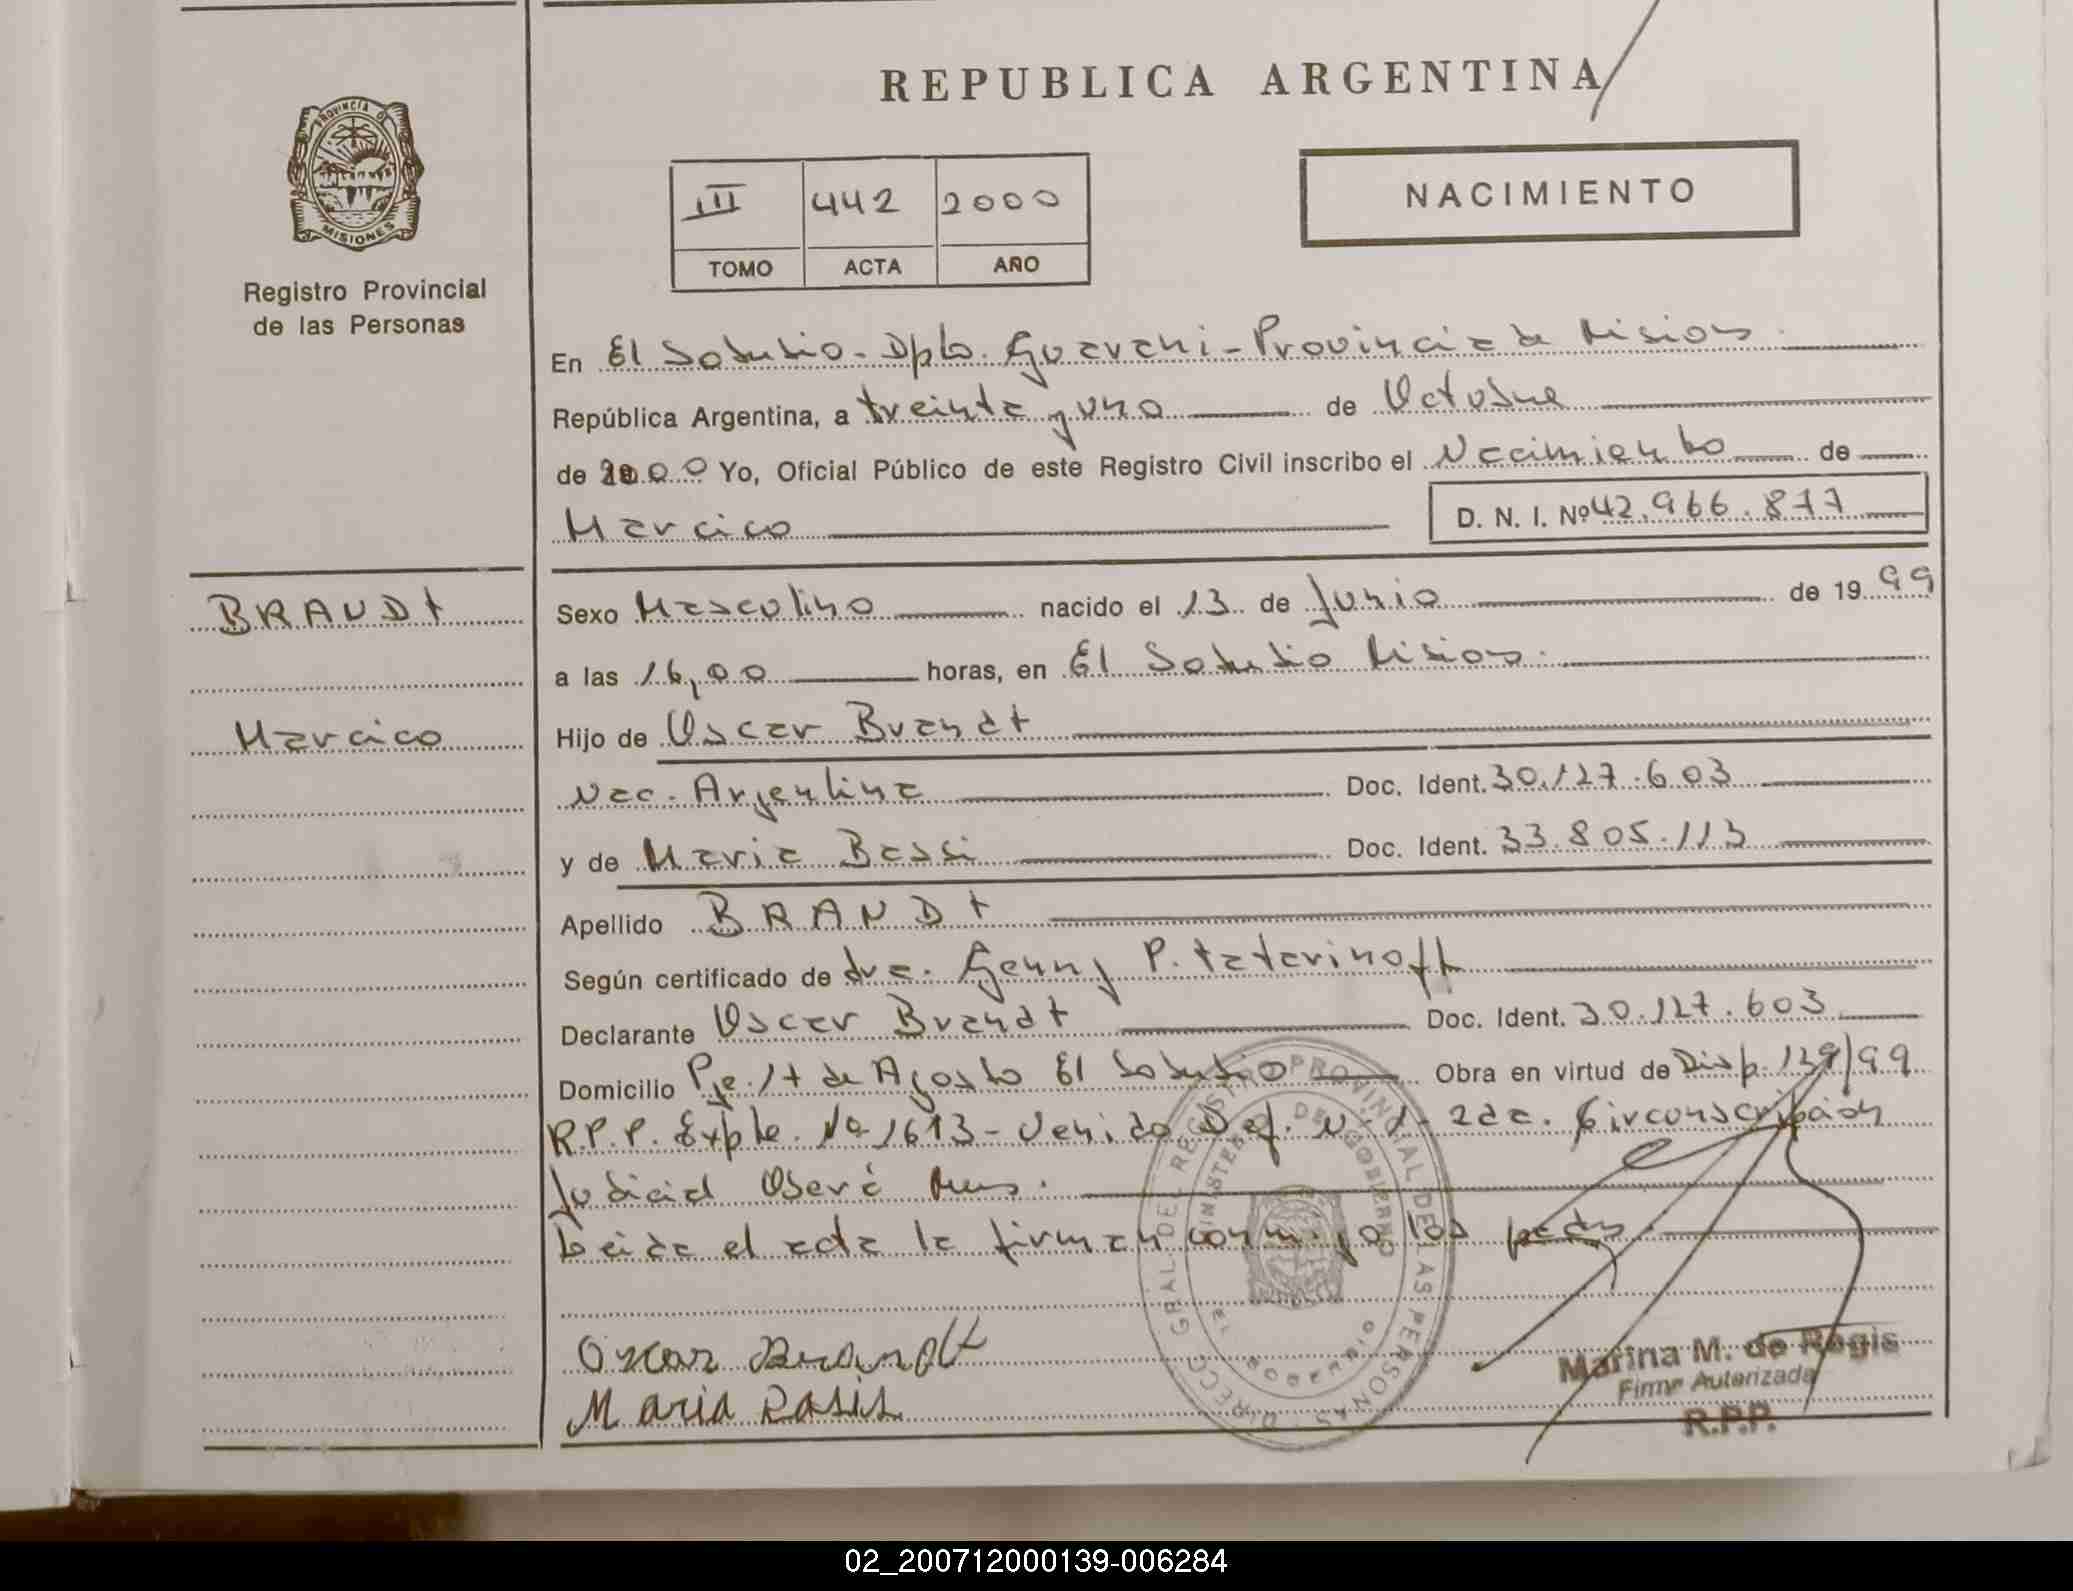 REPUBLICA ARGENTINA
PROVINCIA DE
MISIONES
Registro Provincial
de las Personas
III 442 2000
TOMO ACTA AÑO
NACIMIENTO
En El Soberbio - Dpto. Guarani - Provincia de Misiones.
República Argentina, a treinta y uno de Octubre
de 2000 Yo, Oficial Público de este Registro Civil inscribo el Nacimiento de
Marcico
D. N. I. Nº 42.966.877
BRANDt
Marcico
Sexo Masculino nacido el 13 de Junio de 1999
a las 16,00 horas, en El Soberbio Misiones.
Hijo de Oscar Brandt
Nac. Argentina Doc. Ident. 30.127.603
y de Maria Bassi Doc. Ident. 33.805.113
Apellido BRANDt
Según certificado de dra. Genny P. tatarinoff
Declarante Oscar Brandt Doc. Ident. 30.127.603
Domicilio Pje. 17 de Agosto El Soberbio Obra en virtud de Disp. 139/99
R.P.P. Expte. Nº 1613 - Venido Def. Nº 1 - 2da. Circonscripción
Judicial Oberá Mnes.
Leida el acta la firman conmigo los padres.
Oscar Brandt
Maria
DIRECC. GRAL. DEL REGISTRO PROVINCIAL DE LAS PERSONAS
MINISTERIO DE GOBIERNO
El SOBERBIO
Marina M. de Regis
Firma Autorizada
R.P.P.
02_200712000139-006284